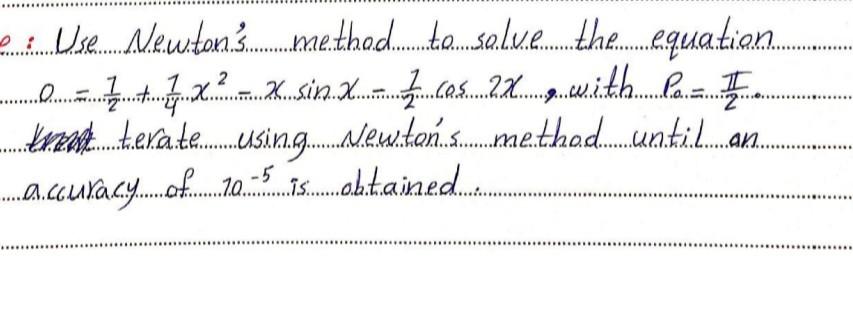 e : Use Newton's method to solve the equation
0 = 1/2 + 1/4 x² - x sin x - 1/2 cos 2x , with P₀ = π/2.
terate using Newton's method until an
accuracy of 10⁻⁵ is obtained .